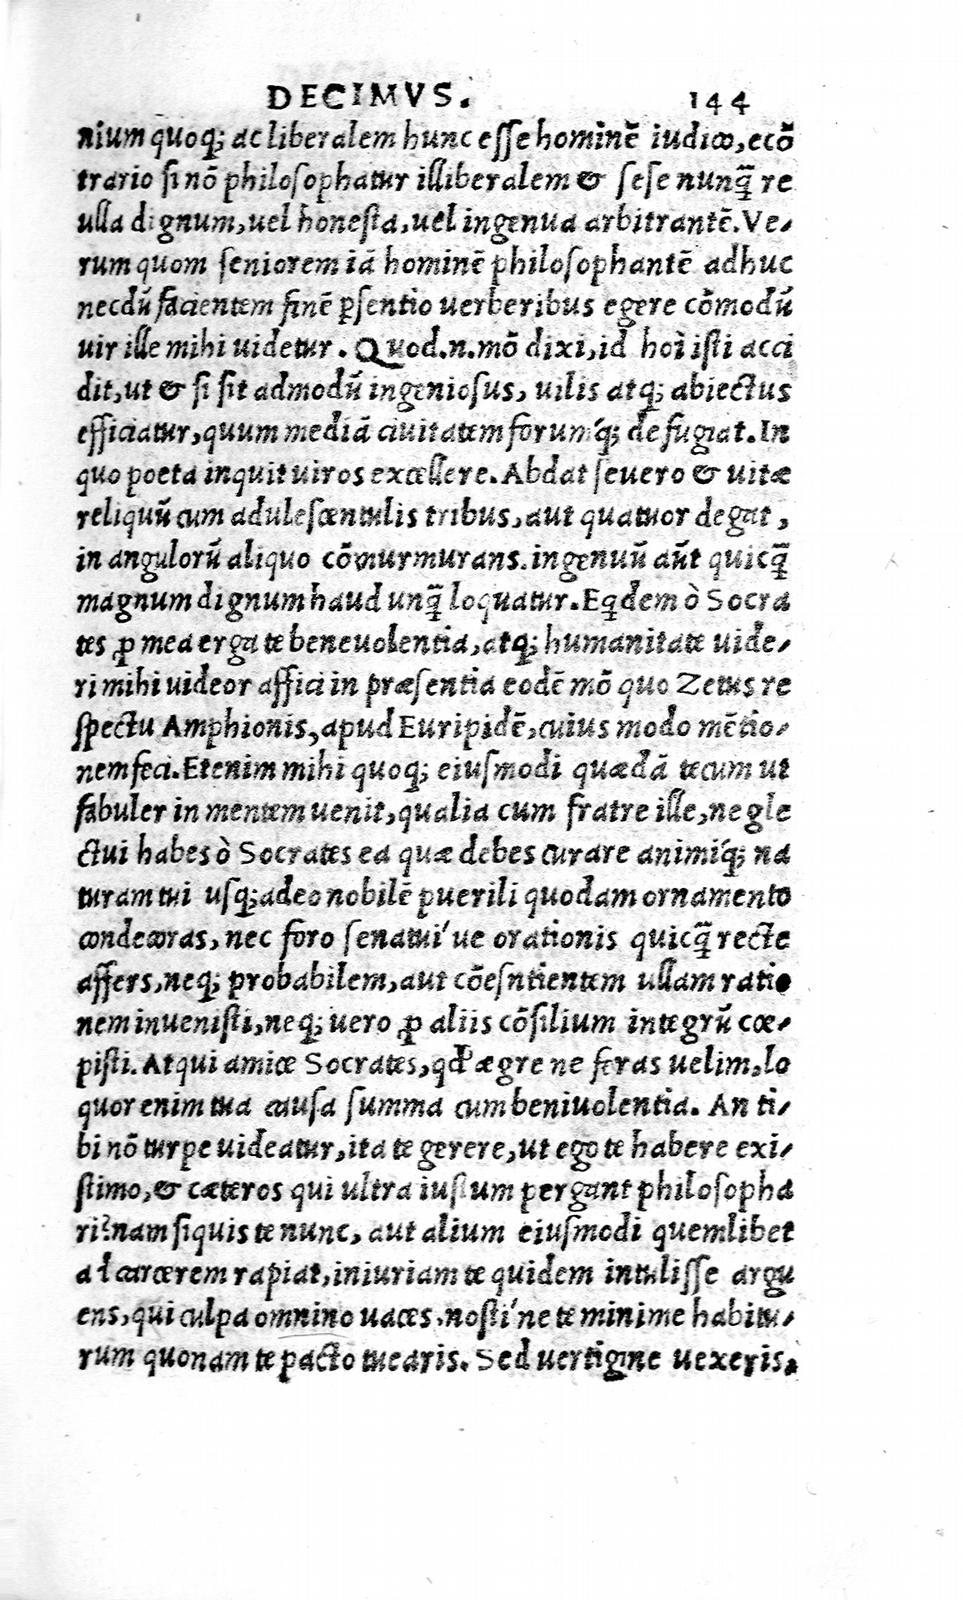 DECIMVS. 144
nium quoq; ac liberalem hunc esse hominē iudico, ecō
trario si nō philosophatur illiberalem & sese nunq̄ re
ulla dignum, uel honesta, uel ingenua arbitrantē. Ve-
rum quom seniorem iā hominē philosophantē adhuc
necdū facientem finē p̱sentio uerberibus egere cōmodū
uir ille mihi uidetur. Quod.n.mō dixi, id hoī isti acci
dit, ut & si sit admodū ingeniosus, uilis atq; abiectus
efficiatur, quum mediā ciuitatem forum'q; defugiat. In
quo poeta inquit uiros excellere. Abdat seuero & uitæ
reliquū cum adulescentulis tribus, aut quatuor degat,
in angulorū aliquo cōmurmurans. ingenuū aūt quicq̄
magnum dignum haud unq̄ loquatur. Eqdem ò Socra
tes ꝓ mea erga te beneuolentia, atq; humanitate uide-
ri mihi uideor affici in præsentia eodē mō quo Zetus re
spectu Amphionis, apud Euripidē, cuius modo mētio-
nem feci. Etenim mihi quoq; eiusmodi quædā tecum ut
fabuler in mentem uenit, qualia cum fratre ille, negle
ctui habes ò Socrates ea quæ debes curare animi'q; na
turam tui usq; adeo nobilē puerili quodam ornamento
condecoras, nec foro senatui've orationis quicq̄ recte
affers, neq; probabilem, aut cōesntientem ullam ratio
nem inuenisti, neq; uero ꝓ aliis cōsilium integrū cœ-
pisti. Atqui amice Socrates, qđ ægre ne feras uelim, lo
quor enim tua causa summa cum beniuolentia. An ti-
bi nō turpe uideatur, ita te gerere, ut ego te habere exi-
stimo, & cæteros qui ultra iustum pergant philosopha
ri? nam siquis te nunc, aut alium eiusmodi quemlibet
ad carcerem rapiat, iniuriam te quidem intulisse argu
ens, qui culpa omnino uaces, nosti'ne te minime habitu-
rum quonam te pacto tuearis. Sed uertigine uexeris,